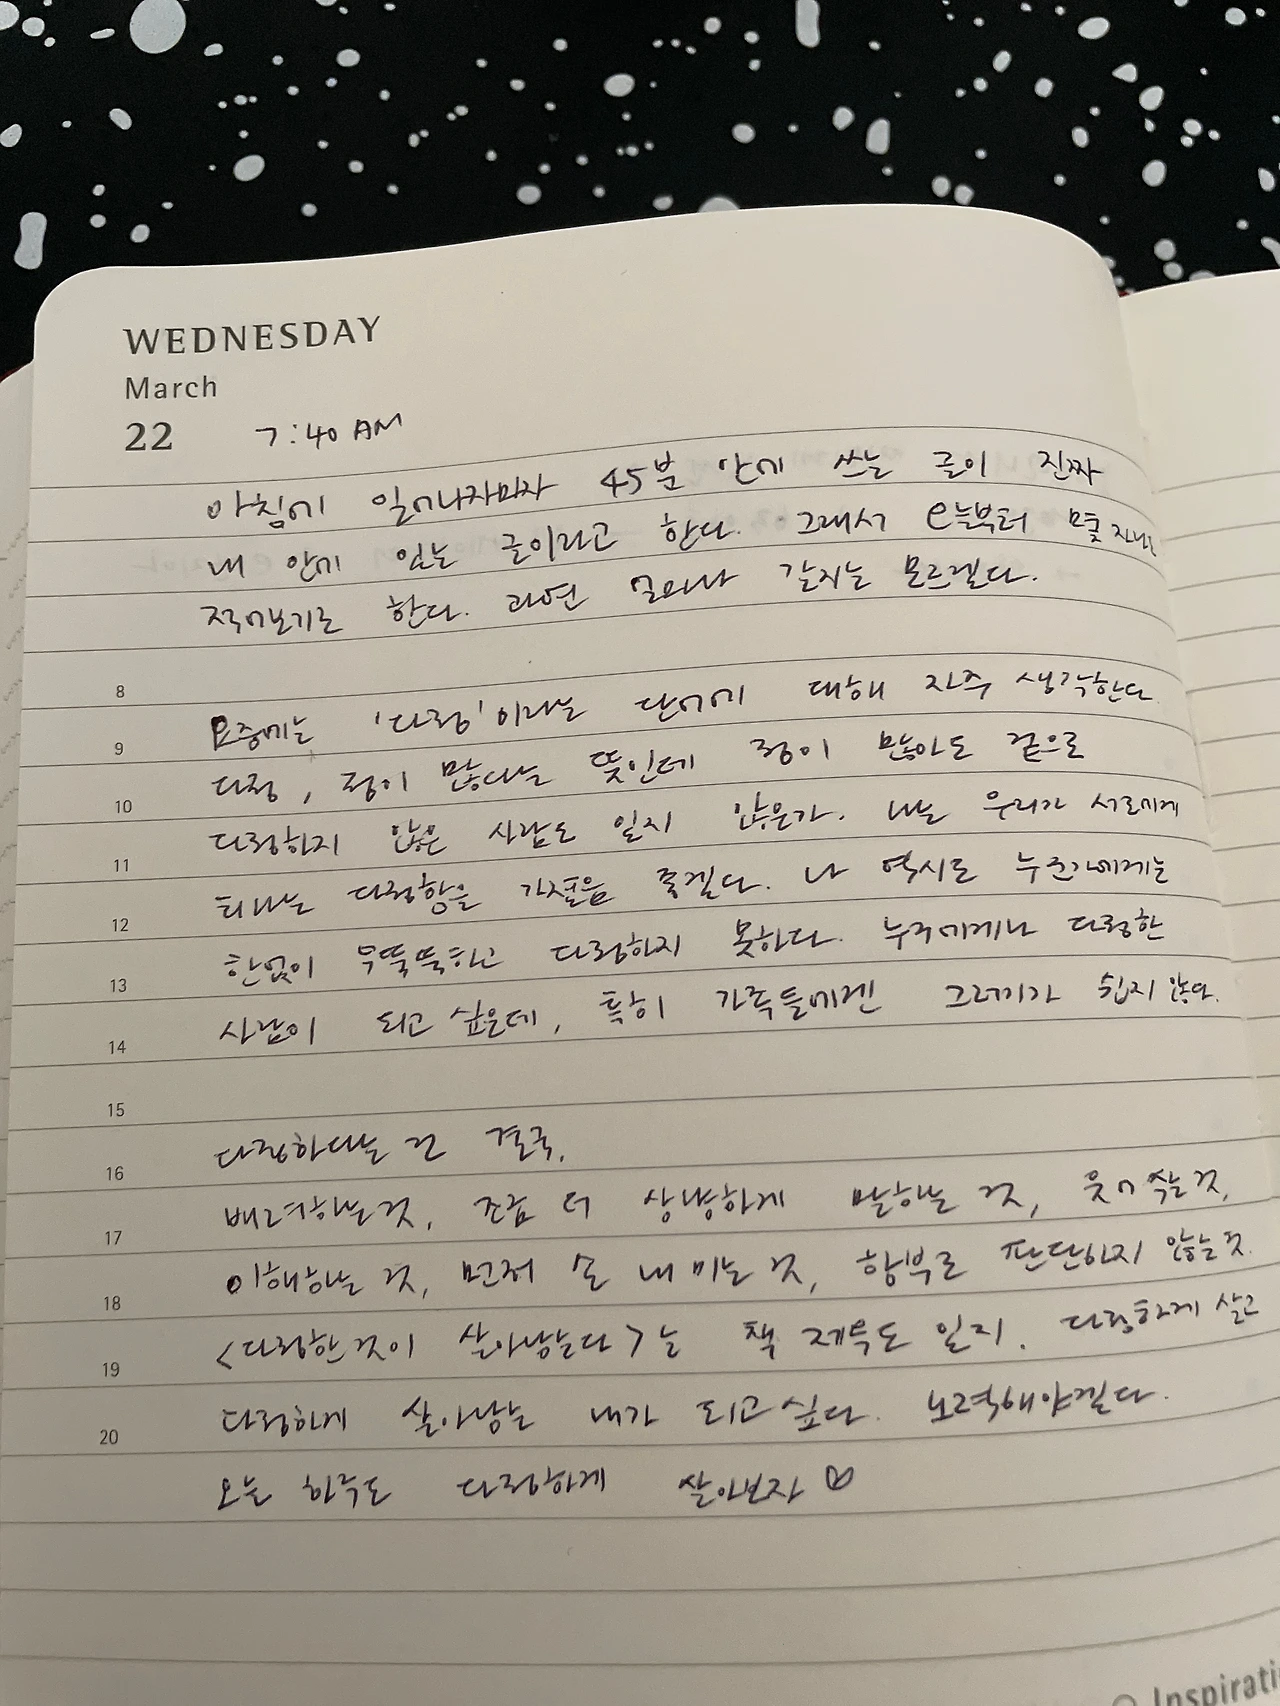 WEDNESDAY
March
22 7:40 AM
아침에 일어나자마자 45분 안에 쓰는 글이 진짜
내 안에 있는 글이라고 한다. 그래서 오늘부터 몇
적어보기로 한다. 과연 얼마나 갈지는 모르겠다.
8
9 요즘에는 '다정'이라는 단어에 대해 자주 생각한다
10 다정, 정이 많다는 뜻인데 정이 많아도 겉으로
11 다정하지 않은 사람도 있지 않은가. 나는 우리가 서로에게
12 티나는 다정함을 가졌음 좋겠다. 나 역시도 누군가에게는
13 한없이 무뚝뚝하고 다정하지 못하다. 누구에게나 다정한
14 사람이 되고 싶은데, 특히 가족들에겐 그러기가 쉽지 않다.
15
16 다정하다는 건 결국,
17 배려하는 것, 조금 더 상냥하게 말하는 것, 웃어주는 것,
18 이해하는 것, 먼저 손 내미는 것, 함부로 판단하지 않는 것.
19 <다정한 것이 살아남는다>는 책 제목도 있지. 다정하게 살고
20 다정하게 살아남는 내가 되고 싶다. 노력해야겠다.
오늘 하루도 다정하게 살아보자 ♡